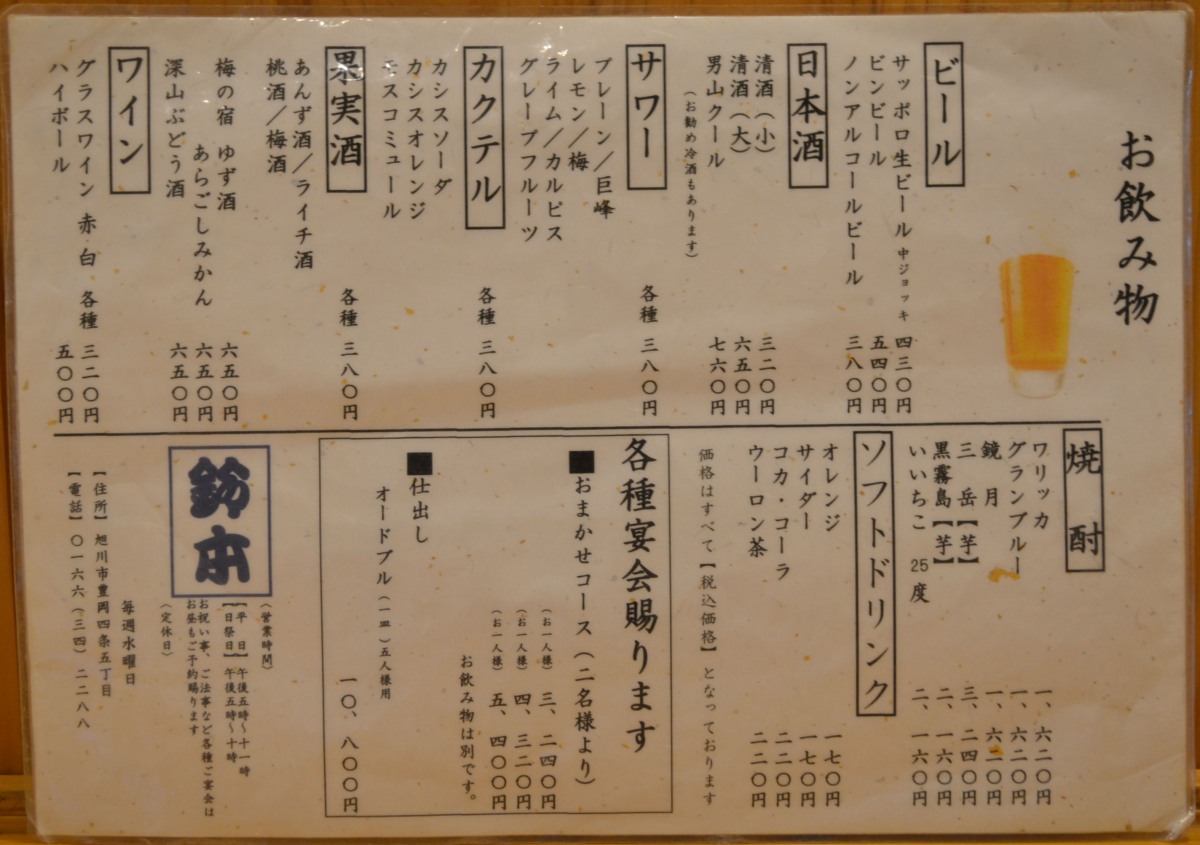 お飲み物
ビール
サッポロ生ビール 中ジョッキ 四三〇円
ビンビール 五四〇円
ノンアルコールビール 三八〇円
日本酒
清酒（小） 三二〇円
清酒（大） 六五〇円
男山クール 七六〇円
（お勧め冷酒もあります）
サワー 各種 三八〇円
プレーン／巨峰
レモン／梅
ライム／カルピス
グレープフルーツ
カクテル 各種 三八〇円
カシスソーダ
カシスオレンジ
モスコミュール
果実酒 各種 三八〇円
あんず酒／ライチ酒
桃酒／梅酒
梅の宿 ゆず酒 六五〇円
あらごしみかん 六五〇円
深山ぶどう酒 六五〇円
ワイン
グラスワイン 赤 白 各種 三二〇円
ハイボール 五〇〇円
焼酎
ワリッカ 一、六二〇円
グランブルー 一、六二〇円
鏡月 一、六二〇円
三岳【芋】 三、二四〇円
黒霧島【芋】 二、一六〇円
いいちこ 25度 二、一六〇円
ソフトドリンク
オレンジ 一七〇円
サイダー 一七〇円
コカ・コーラ 二二〇円
ウーロン茶 二二〇円
価格はすべて【税込価格】となっております
各種宴会賜ります
■おまかせコース（二名様より）
（お一人様） 三、二四〇円
（お一人様） 四、三二〇円
（お一人様） 五、四〇〇円
お飲み物は別です。
■仕出し
オードブル（一皿）五人様用
一〇、八〇〇円
鈴本
（営業時間）
【平 日】午後五時～十一時
【日祭日】午後五時～十時
お祝い事、ご法事など各種ご宴会は
お昼もご予約賜ります
（定休日）
毎週水曜日
【住所】旭川市豊岡四条五丁目
【電話】〇一六六（三四）二二八八